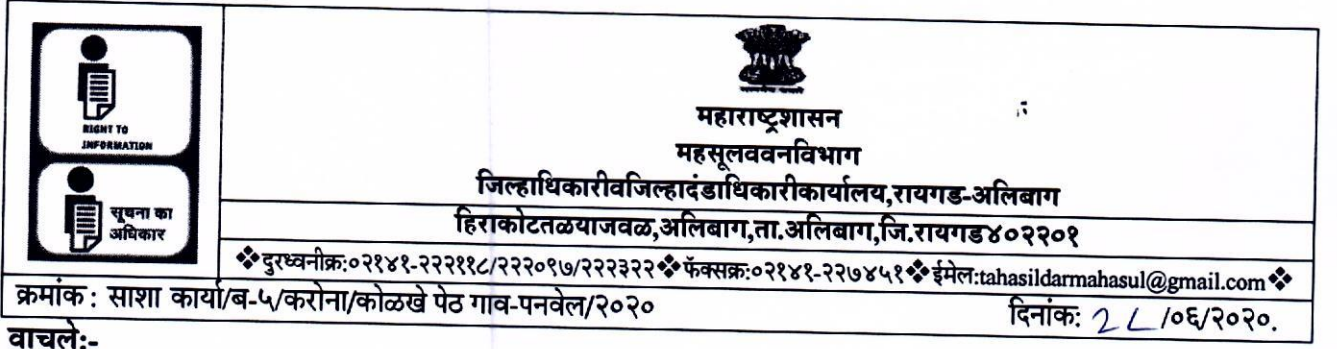 RIGHT TO
INFORMATION
सूचना का
अधिकार
महाराष्ट्रशासन
महसूलववनविभाग
जिल्हाधिकारीवजिल्हादंडाधिकारीकार्यालय,रायगड-अलिबाग
हिराकोटतळयाजवळ,अलिबाग,ता.अलिबाग,जि.रायगड४०२२०१
❖दुरध्वनीक्र:०२१४१-२२२११८/२२२०९७/२२२३२२❖फॅक्सक्र:०२१४१-२२७४५१❖ईमेल:tahasildarmahasul@gmail.com❖
क्रमांक : साशा कार्या/ब-५/करोना/कोळखे पेठ गाव-पनवेल/२०२० दिनांक: /०६/२०२०.
वाचले:-